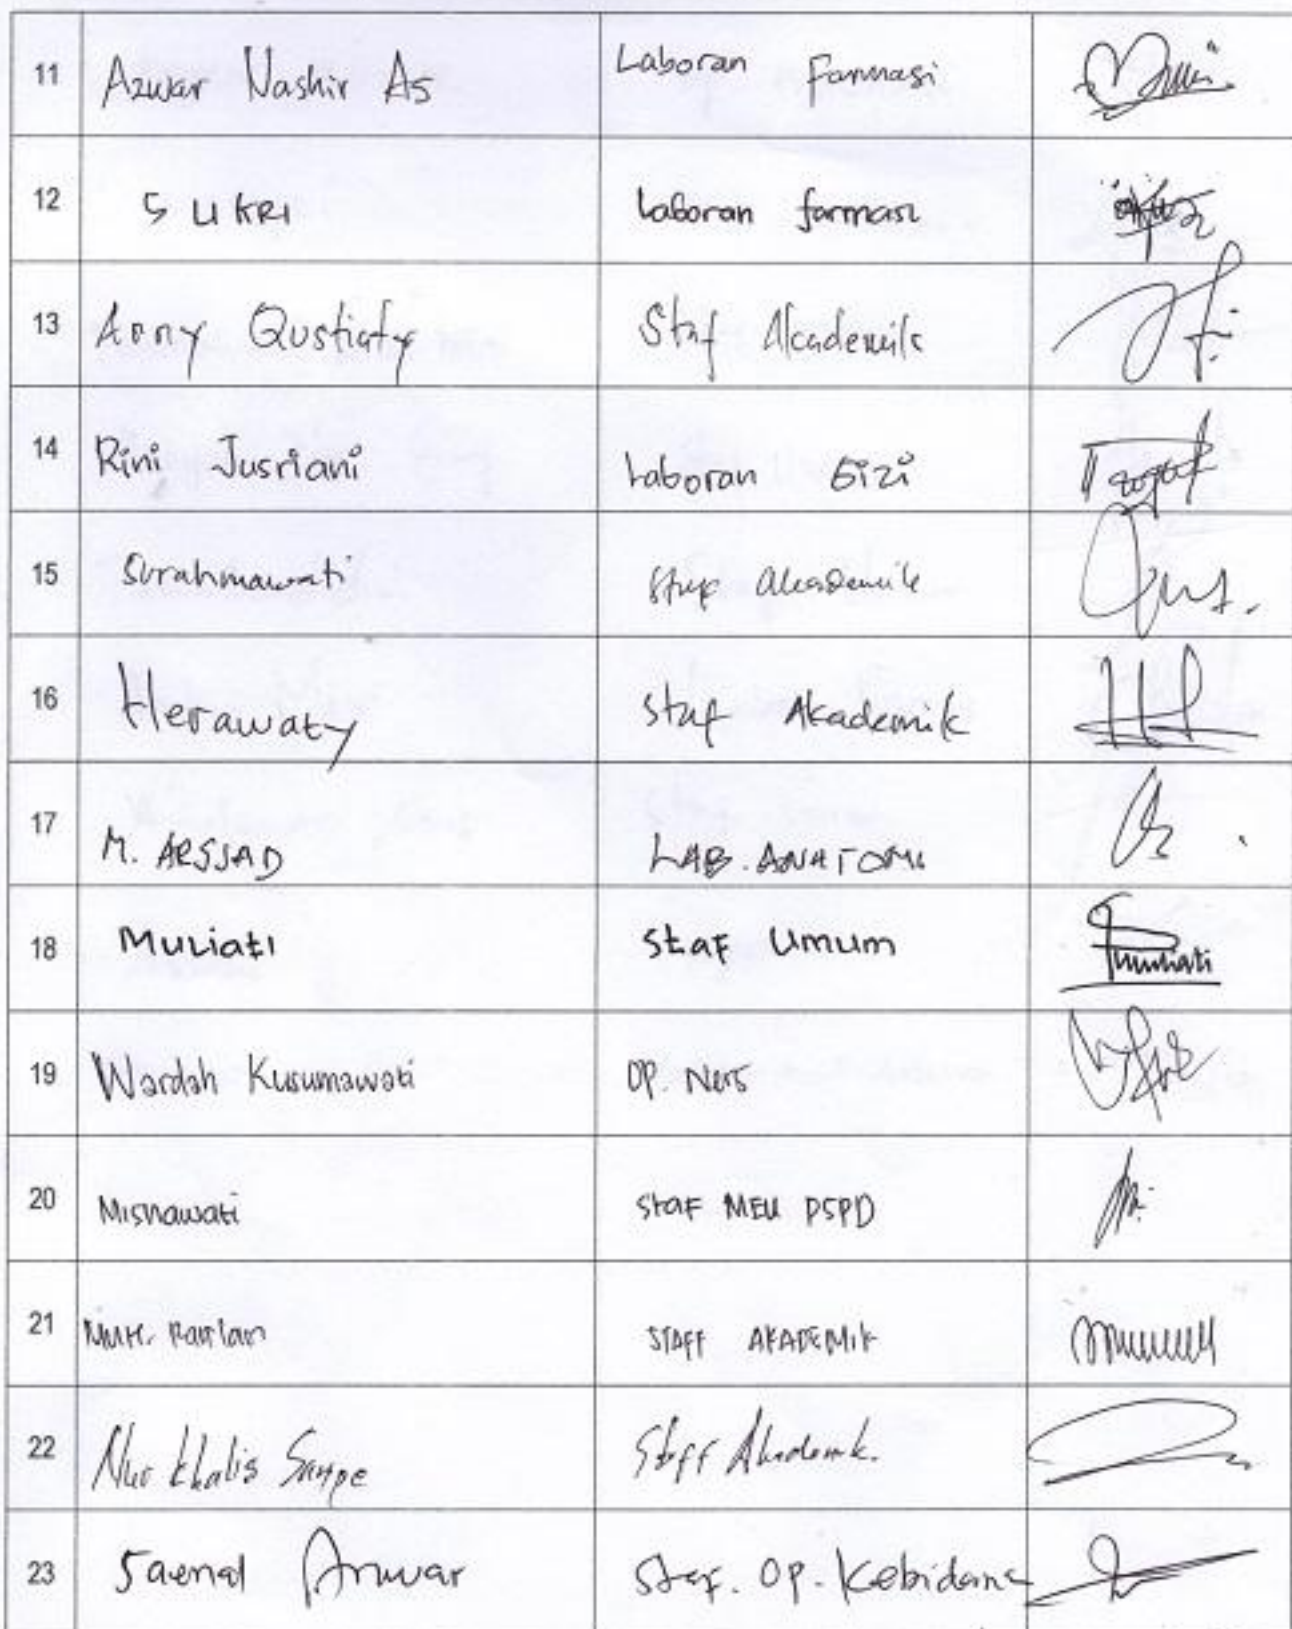 11 Azwar Nashir As Laboran Farmasi
12 SUKRI Laboran farmasi
13 Anny Qustiaty Staf Akademik
14 Rini Jusriani Laboran Gizi
15 Surahmawati Staf Akademik
16 Herawaty Staf Akademik
17 M. ARSSAD LAB. ANATOMI
18 Muliati Staf Umum Muliati
19 Wardah Kusumawati OP. Ners
20 Misnawati Staf MEU PSPD
21 MUH. STAFF AKADEMIK
22 Nur Khalis Staff Akademik.
23 Saenal Anwar Staf. OP. Kebidana